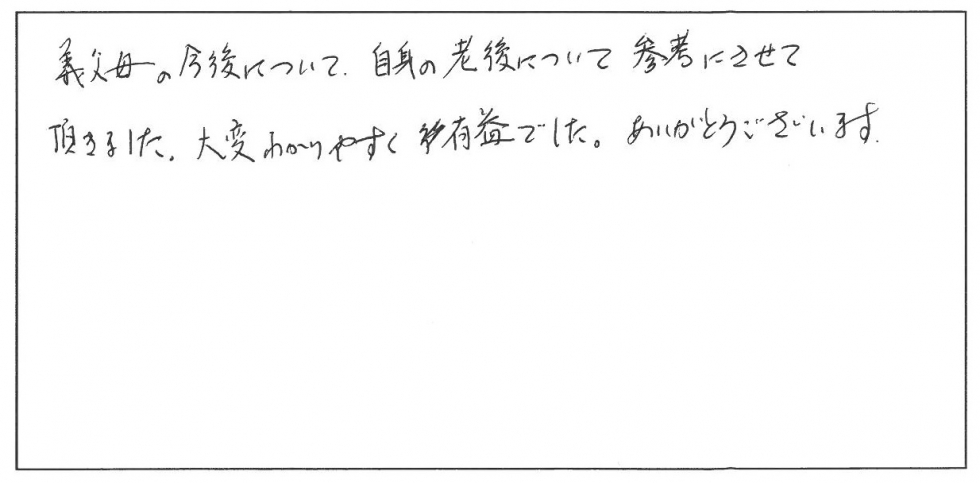 義父母の今後について、自身の老後について参考にさせて
頂きました。大変わかりやすく有益でした。ありがとうございます。